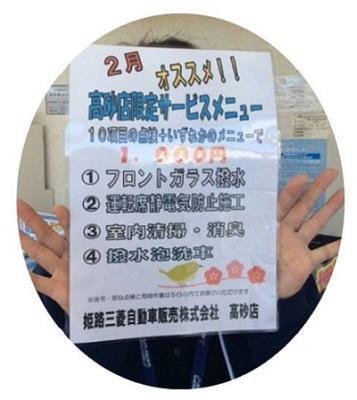 2月
オススメ!!
高砂店限定サービスメニュー
10項目の点検+いずれかのメニューで
1,000円
① フロントガラス撥水
② 運転席静電気防止施工
③ 室内清掃・消臭
④ 撥水泡洗車
姫路三菱自動車販売株式会社 高砂店